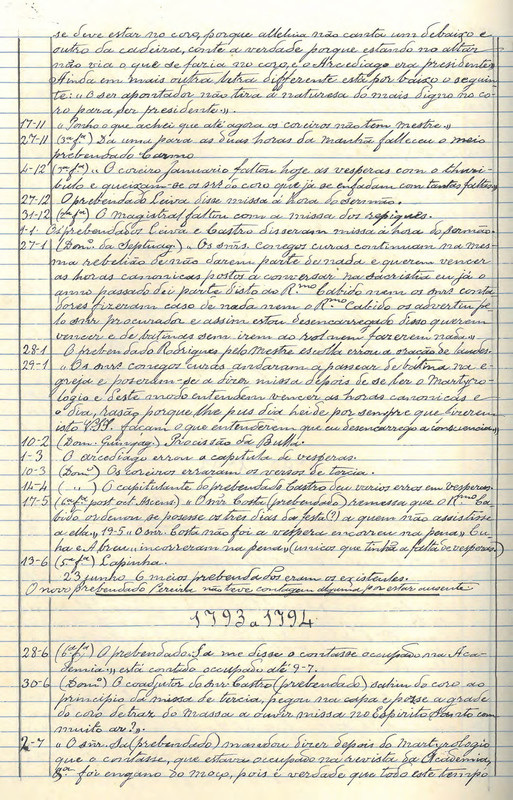 se deve estar no coro, porque alleluia não canta um debaixo e
outro da cadeira, conte a verdade porque estando no altar
não via o que se faria no coro, e o Arcediago era presidente
Ainda em mais outra letra differente está por baixo o seguin-
te: "O ser apontador não tira á naturesa do mais digno no co-
ro para ser presidente".
17-11 "Ponho o que achei que até agora os coreiros não tem mestre."
27-11 (3ª fª) La uma para as duas horas da manhã falleceu o meio
prebendado Carmo
4-12 (3ª fª) "O coreiro Januario faltou hoje as vesperas com o thuri-
bulo e queixam-se os snrs do coro que já se enfadam com tantas faltas"
27-12 O prebendado Leiva disse missa à hora do sermão.
31-12 O Magistral faltou com a missa dos repiques.
1-1 Os prebendados Leiva e Castro disseram missa à hora do sermão.
27-1 (Domº da Septuag.) "Os snrs. conegos curas continuam na mes-
ma rebelião de não darem parte de nada e querem vencer
as horas canonicas postos a conversar na sacristia eu já o
anno passado dei parte disto ao Rmo Cabido nem os snrs conta-
dores fizeram caso de nada nem o Rmo Cabido os advertiu pe-
lo snr procurador e assim estou desencarregado disso querem
vencer e de batinas sem irem ao rol nem fazerem nada"
28-1 O prebendado Rodrigues pelo Mestre escolla errou a oração de laudes.
29-1 "Os snrs conegos curas andaram a passear de batina na e-
greja e poseram-se a dizer missa depois de se ler o Martyro-
logio e deste modo entendem vencer as horas canonicas e
o dia, rasão porque lhe pus dia heide por sempre que fizerem
isto façam o que entenderem que eu desencarrego a consciencia"
10-2 (Dom. Quinquag.) Procissão da Bulla.
1-3 O arcediago errou a capitula de vesperas.
10-3 (Domº) Os coreiros erraram os versos de tercia.
14-4 ( " ) O capitulante do prebendado Castro deu varios erros em vesperas.
17-5 (6ª fª post oct. Ascens.) "O snr. Costa (prebendado) remessa que o Rmo Ca-
bido ordenou se posesse os tres dias da festa(?) a quem não assistisse
a ella" 19-5 "O snr. Costa não foi a vespera encorreu na pena" Cu-
nha e Abreu "incorreram na pena" (unicos que tinhão a falta de vesperas)
13-6 (5ª fª) Capinha.
23 junho 6 meios prebendados eram os existentes.
O novo prebendado Pereira não teve contagem alguma por estar ausente
1793 a 1794
28-6 (6ª fª) O prebendado Sa me disse o contasse occupado na Aca-
demia" está contado occupado até 9-7.
30-6 (Domº) O coadjutor do snr Castro (prebendado) sahiu do coro ao
principio da missa de tercia, pegou na capa e posse a grade
do coro detraz do Massa a ouvir missa no Espirito Santo com
muito ar".
2-7 "O snr. Sa (prebendado) mandou dizer depois do Martyrologio
que o contasse, que estava occupado na revista da Academia,
foi engano do moço, pois é verdade que todo este tempo